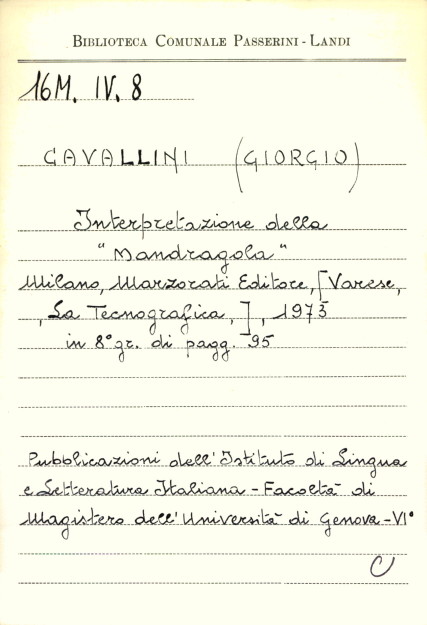 BIBLIOTECA COMUNALE PASSERINI - LANDI
16M. IV. 8
CAVALLINI (GIORGIO)
Interpretazione della
"Mandragola"
Milano, Marzorati Editore, [Varese,
, La Tecnografica, ] , 1973
in 8° gr. di pagg. 95
Pubblicazioni dell'Istituto di Lingua
e Letteratura Italiana - Facoltà di
Magistero dell'Università di Genova - VI°
C